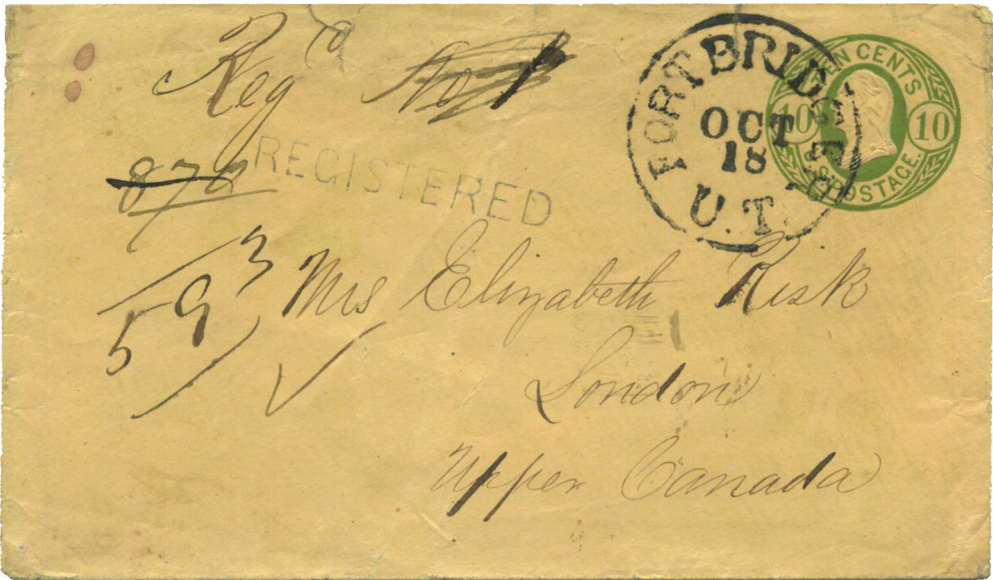 Regd No 1
872
REGISTERED
593
FORT BRIDGER
OCT
18
U.T.
TEN CENTS
10 10
POSTAGE.
Mrs Elizabeth Risk
London
Upper Canada